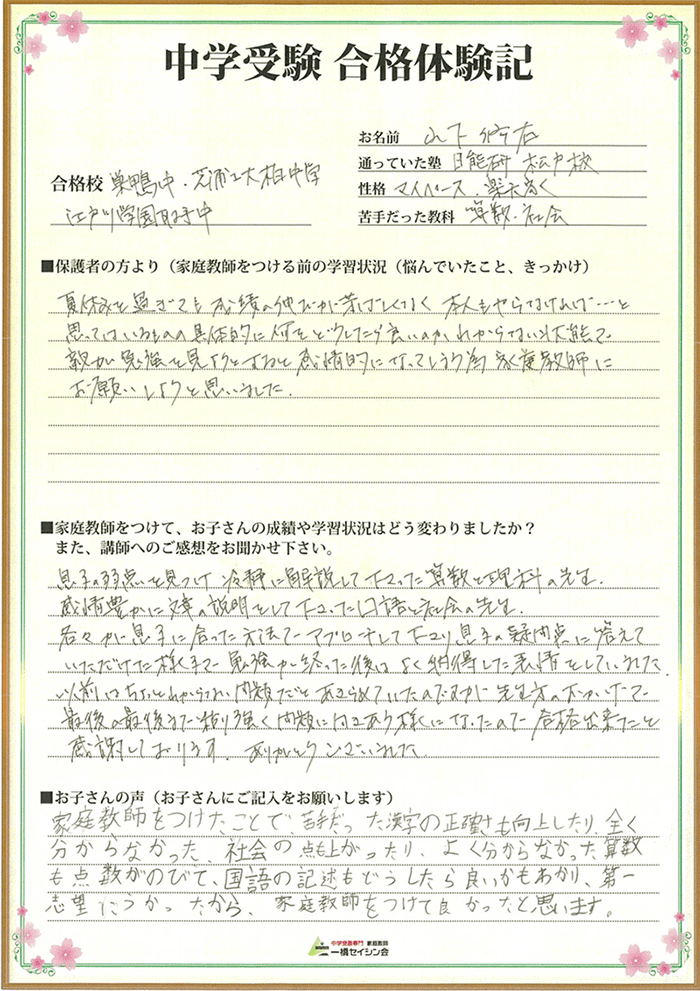 中学受験 合格体験記
お名前 山下
通っていた塾 日能研 松戸校
合格校 巣鴨中・芝浦工大柏中学
性格 マイペース・楽天家
江戸川学園取手中
苦手だった教科 算数・社会
■保護者の方より（家庭教師をつける前の学習状況（悩んでいたこと、きっかけ）
夏休みを過ぎても成績の伸びが芳ばしくなく 本人もやらなければ…と
思ってはいるものの具体的に何をどうしたら良いのかわからない状態で
親が勉強を見ようとすると感情的になってしまう為 家庭教師に
お願いしようと思いました.
■家庭教師をつけて、お子さんの成績や学習状況はどう変わりましたか？
また、講師へのご感想をお聞かせ下さい。
息子の弱点を見つけ 冷静に解説して下さった算数と理科の先生.
感情豊かに文章の説明をして下さった国語と社会の先生.
各々が息子に合った方法でアプローチして下さり 息子の疑問点に答えて
いただけた様子で 勉強が終った後はよく納得した表情をしていました.
以前はちょっとわからない問題だとあきらめていたのですが 先生方のおかげで
最後の最後まで粘り強く問題に向きあう様になったので 合格出来たと
感謝しております. ありがとうございました
■お子さんの声（お子さんにご記入をお願いします）
家庭教師をつけたことで、苦手だった漢字の正確さも向上したり、全く
分からなかった、社会の点も上がったり、よく分からなかった算数
も点数がのびて、国語の記述もどうしたら良いかもわかり、第一
志望にうかったから、家庭教師をつけて良かったと思います。
中学受験専門 家庭教師
一橋セイシン会